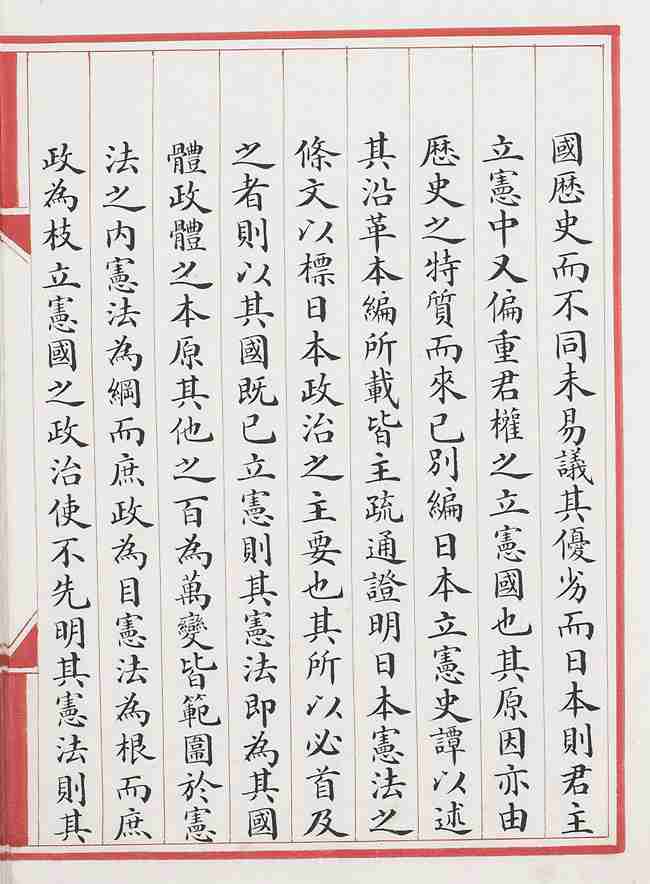 國歷史而不同未易議其優劣而日本則君主
立憲中又偏重君權之立憲國也其原因亦由
歷史之特質而來已別編日本立憲史譚以述
其沿革本編所載皆主疏通證明日本憲法之
條文以標日本政治之主要也其所以必首及
之者則以其國既已立憲則其憲法即為其國
體政體之本原其他之百為萬變皆範圍於憲
法之內憲法為綱而庶政為目憲法為根而庶
政為枝立憲國之政治使不先明其憲法則其